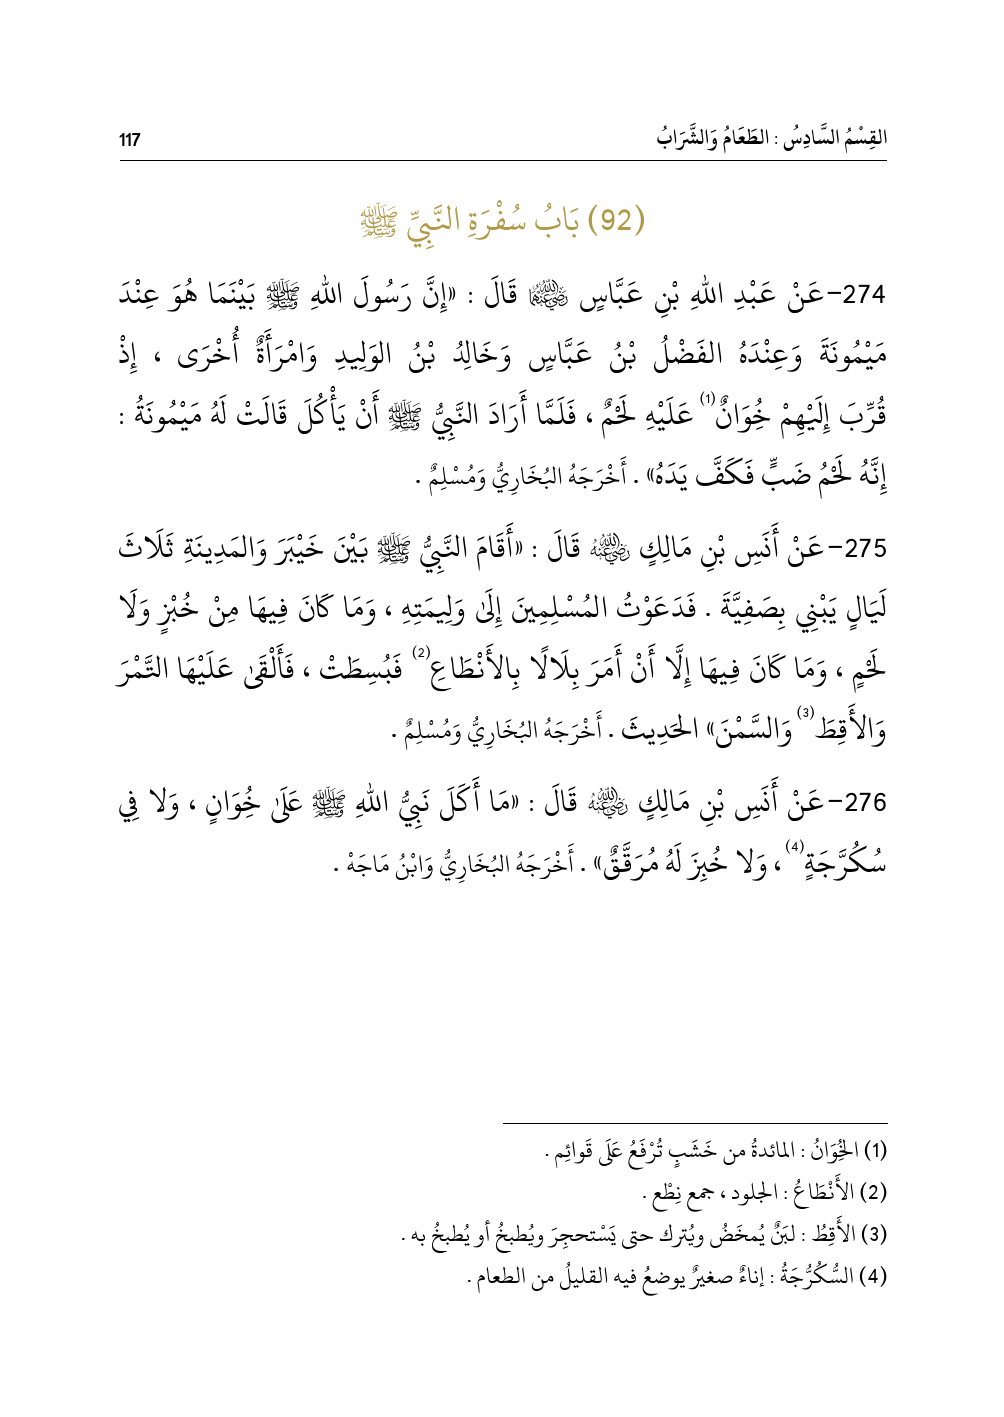 القِسْمُ السَّادِسُ : الطَعَامُ وَالشَّرَابُ
117
(92) بَابُ سُفْرَةِ النَّبِيِّ ﷺ
274-عَنْ عَبْدِ اللهِ بْنِ عَبَّاسٍ رَضِيَ اللهُ عَنْهُمَا قَالَ : «إِنَّ رَسُولَ اللهِ ﷺ بَيْنَمَا هُوَ عِنْدَ
مَيْمُونَةَ وَعِنْدَهُ الفَضْلُ بْنُ عَبَّاسٍ وَخَالِدُ بْنُ الوَلِيدِ وَامْرَأَةٌ أُخْرَى ، إِذْ
قُرِّبَ إِلَيْهِمْ خُوَانٌ(1) عَلَيْهِ لَحْمٌ ، فَلَمَّا أَرَادَ النَّبِيُّ ﷺ أَنْ يَأْكُلَ قَالَتْ لَهُ مَيْمُونَةُ :
إِنَّهُ لَحْمُ ضَبٍّ فَكَفَّ يَدَهُ» . أَخْرَجَهُ البُخَارِيُّ وَمُسْلِمٌ .
275-عَنْ أَنَسِ بْنِ مَالِكٍ رَضِيَ اللهُ عَنْهُ قَالَ : «أَقَامَ النَّبِيُّ ﷺ بَيْنَ خَيْبَرَ وَالمَدِينَةِ ثَلَاثَ
لَيَالٍ يَبْنِي بِصَفِيَّةَ . فَدَعَوْتُ المُسْلِمِينَ إِلَىٰ وَلِيمَتِهِ ، وَمَا كَانَ فِيهَا مِنْ خُبْزٍ وَلَا
لَحْمٍ ، وَمَا كَانَ فِيهَا إِلَّا أَنْ أَمَرَ بِلَالًا بِالأَنْطَاعِ(2) فَبُسِطَتْ ، فَأَلْقَىٰ عَلَيْهَا التَّمْرَ
وَالأَقِطَ(3) وَالسَّمْنَ» الحَدِيثَ . أَخْرَجَهُ البُخَارِيُّ وَمُسْلِمٌ .
276-عَنْ أَنَسِ بْنِ مَالِكٍ رَضِيَ اللهُ عَنْهُ قَالَ : «مَا أَكَلَ نَبِيُّ اللهِ ﷺ عَلَىٰ خُوَانٍ ، وَلا فِي
سُكُرَّجَةٍ(4) ، وَلا خُبِزَ لَهُ مُرَقَّقٌ» . أَخْرَجَهُ البُخَارِيُّ وَابْنُ مَاجَهْ .
(1) الخُِوَانُ : المائدةُ من خَشَبٍ تُرْفَعُ عَلَى قَوائِم .
(2) الأَنْطَاعُ : الجلود ، جمع نِطْع .
(3) الأَقِطُ : لبَنٌ يُمخَضُ ويُترك حتى يَسْتحجِرَ ويُطبخُ أو يُطبخُ به .
(4) السُّكُرُّجَةُ : إناءٌ صغيرٌ يوضعُ فيه القليلُ من الطعام .